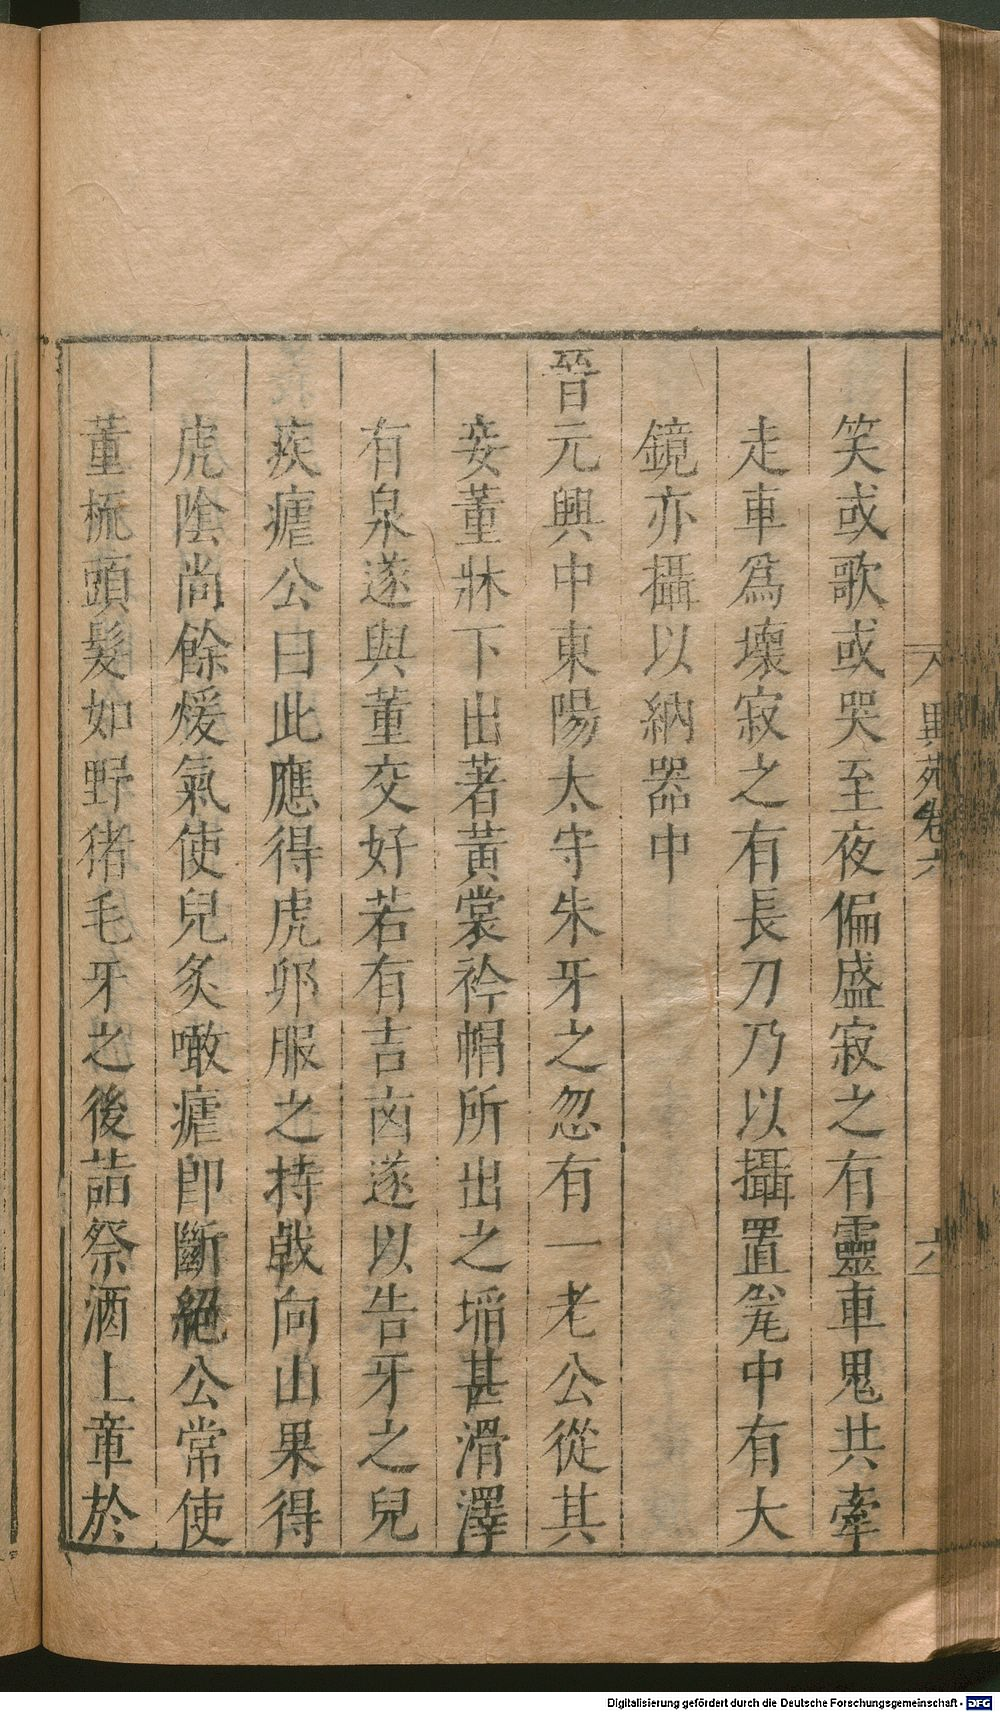 異苑卷六
六
笑或歌或哭至夜偏盛寂之有靈車鬼共牽
走車爲壞寂之有長刀乃以攝置瓮中有大
鏡亦攝以納器中
晉元興中東陽太守朱牙之忽有一老公從其
妾董牀下出著黃裳衿帽所出之坩甚滑澤
有泉遂與董交好若有吉凶遂以告牙之兒
疾瘧公曰此應得虎卵服之持戟向山果得
虎陰尚餘煖氣使兒炙噉瘧即斷絕公常使
董梳頭髮如野猪毛牙之後詣祭酒上章於
Digitalisierung gefördert durch die Deutsche Forschungsgemeinschaft - DFG